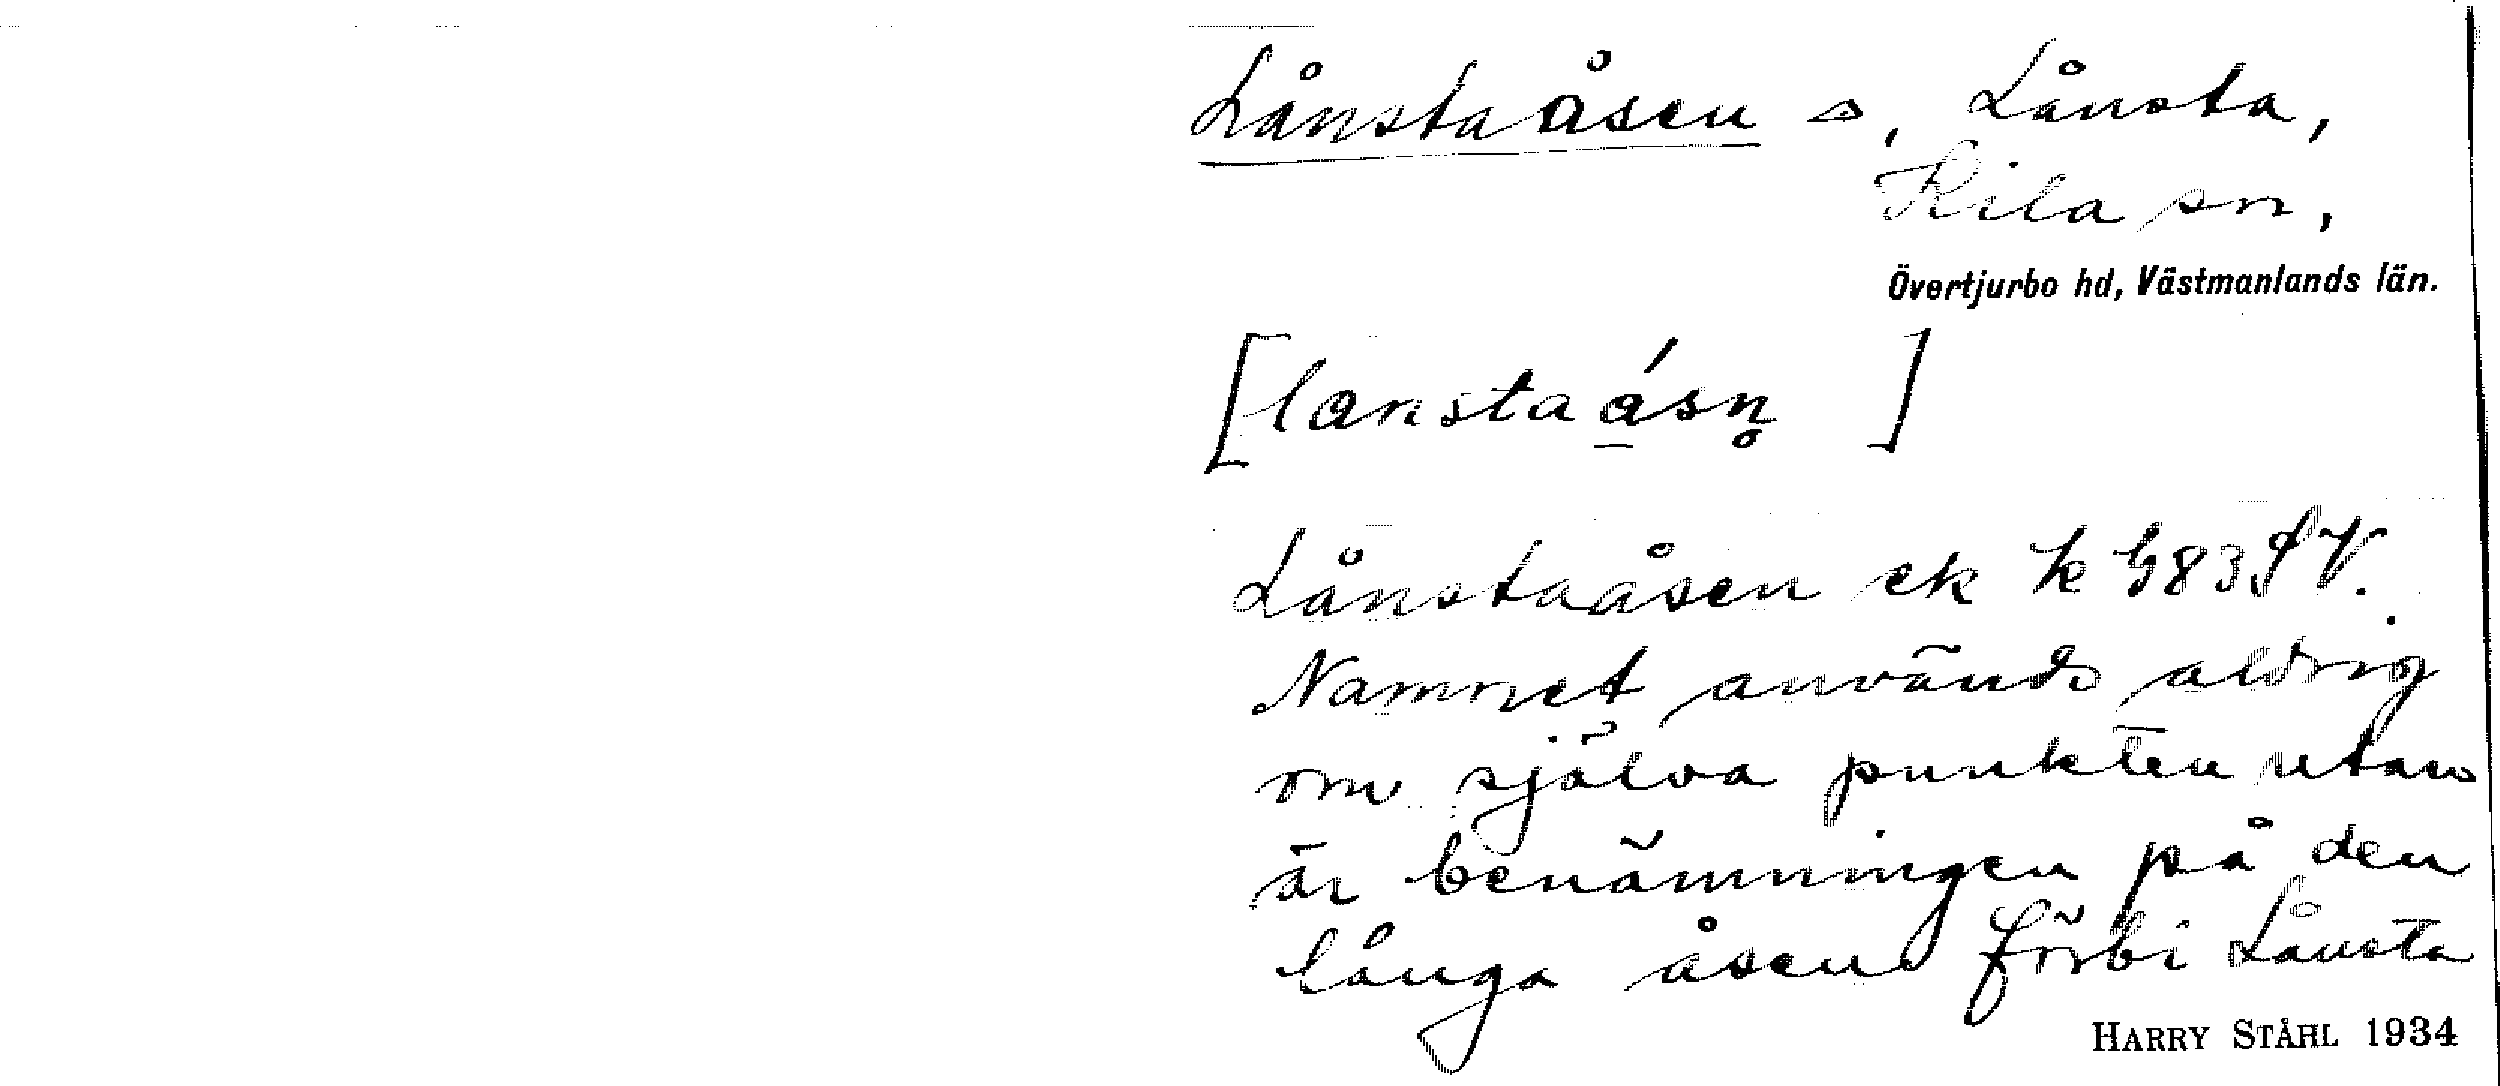 Lånstaåsen △, Lånsta,
Kila sn,
Övertjurbo hd, Västmanlands län.
[lanstaásn̥]
Lånstaåsen ek k G83 SV.
Namnet används aldrig
om själva punkten utan
är benämningen på den
långa åsen förbi Lånsta
HARRY STÅHL 1934